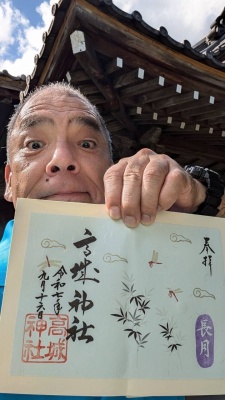 奉拝
長月
高城神社
令和七年
九月十三日
高城
神社